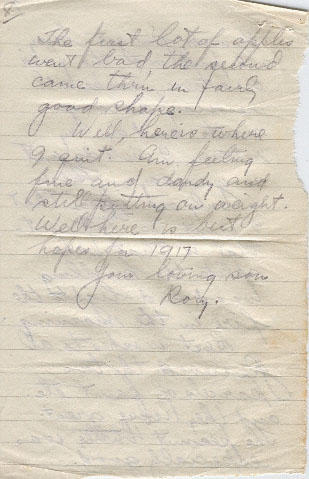 8.
The first lot of apples
went bad the second
came thru in fairly
good shape.
Well, here is where
I quit. Am feeling
fine and dandy and
still putting on weight.
Well here is best
hopes for 1917
Your loving son
Rory.